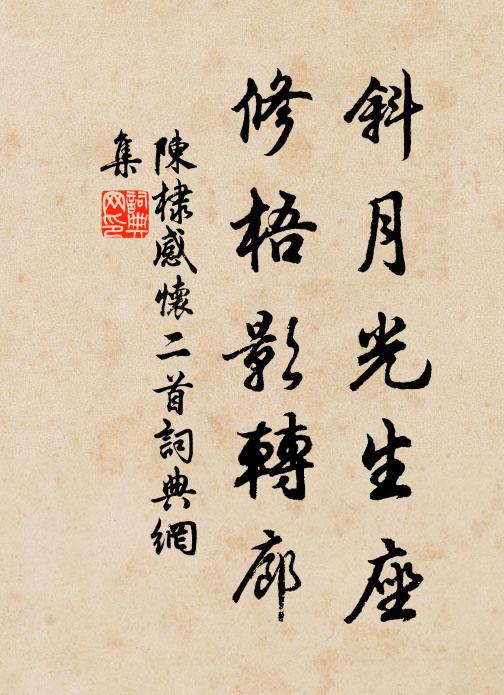 斜月光生座
修梧影轉廊
陳棣感懷二首詞典網
集
詞典网印